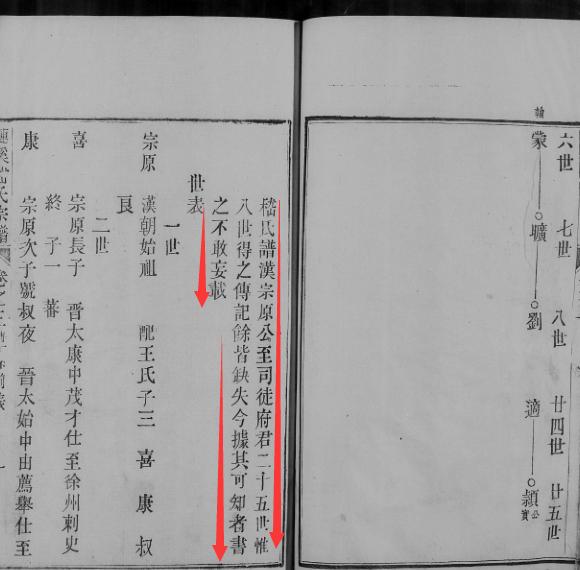 六世 七世 八世 廿四世 廿五世
蒙 壙 劉 適 頴
公實
嵇氏譜漢宗原公至司徒府君二十五世惟
八世得之傳記餘皆缺失今據其可知者書
之不敢妄載
世表
一世
宗原 漢朝始祖 配王氏子三 喜 康 叔
良
二世
喜 宗原長子 晉太康中茂才仕至徐州刺史
終 子一 蕃
康 宗原次子號叔夜 晉太始中由薦舉仕至